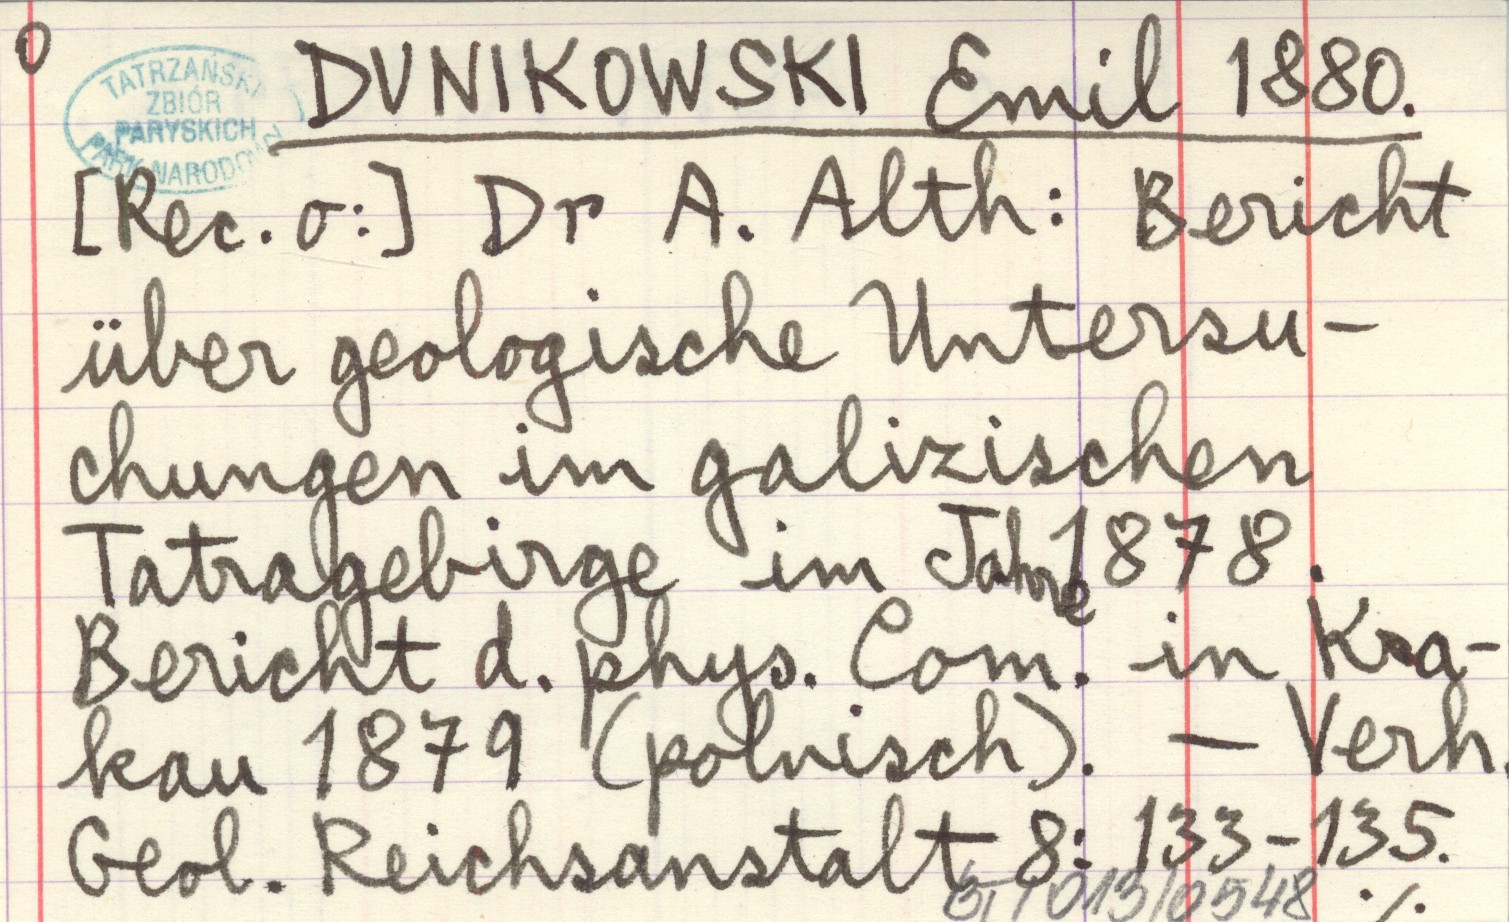 O
TATRZAŃSKI
ZBIÓR
PARYSKICH
PARK NARODOWY
DUNIKOWSKI Emil 1880.
[Rec. o:] Dr A. Alth: Bericht
über geologische Untersu-
chungen im galizischen
Tatragebirge im Jahre 1878.
Bericht d. phys. Com. in Kra-
kau 1879 (polnisch). — Verh.
Geol. Reichsanstalt 8: 133-135.
BT/013/0548 ./.